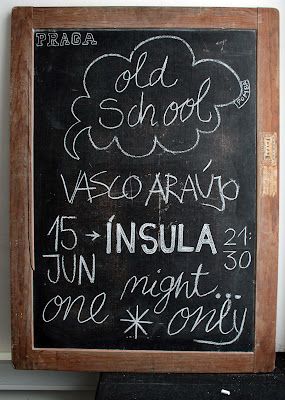 PRAGA
old
School
VASCO ARAÚJO
15 → ÍNSULA 21:
JUN 30
one night...
* only